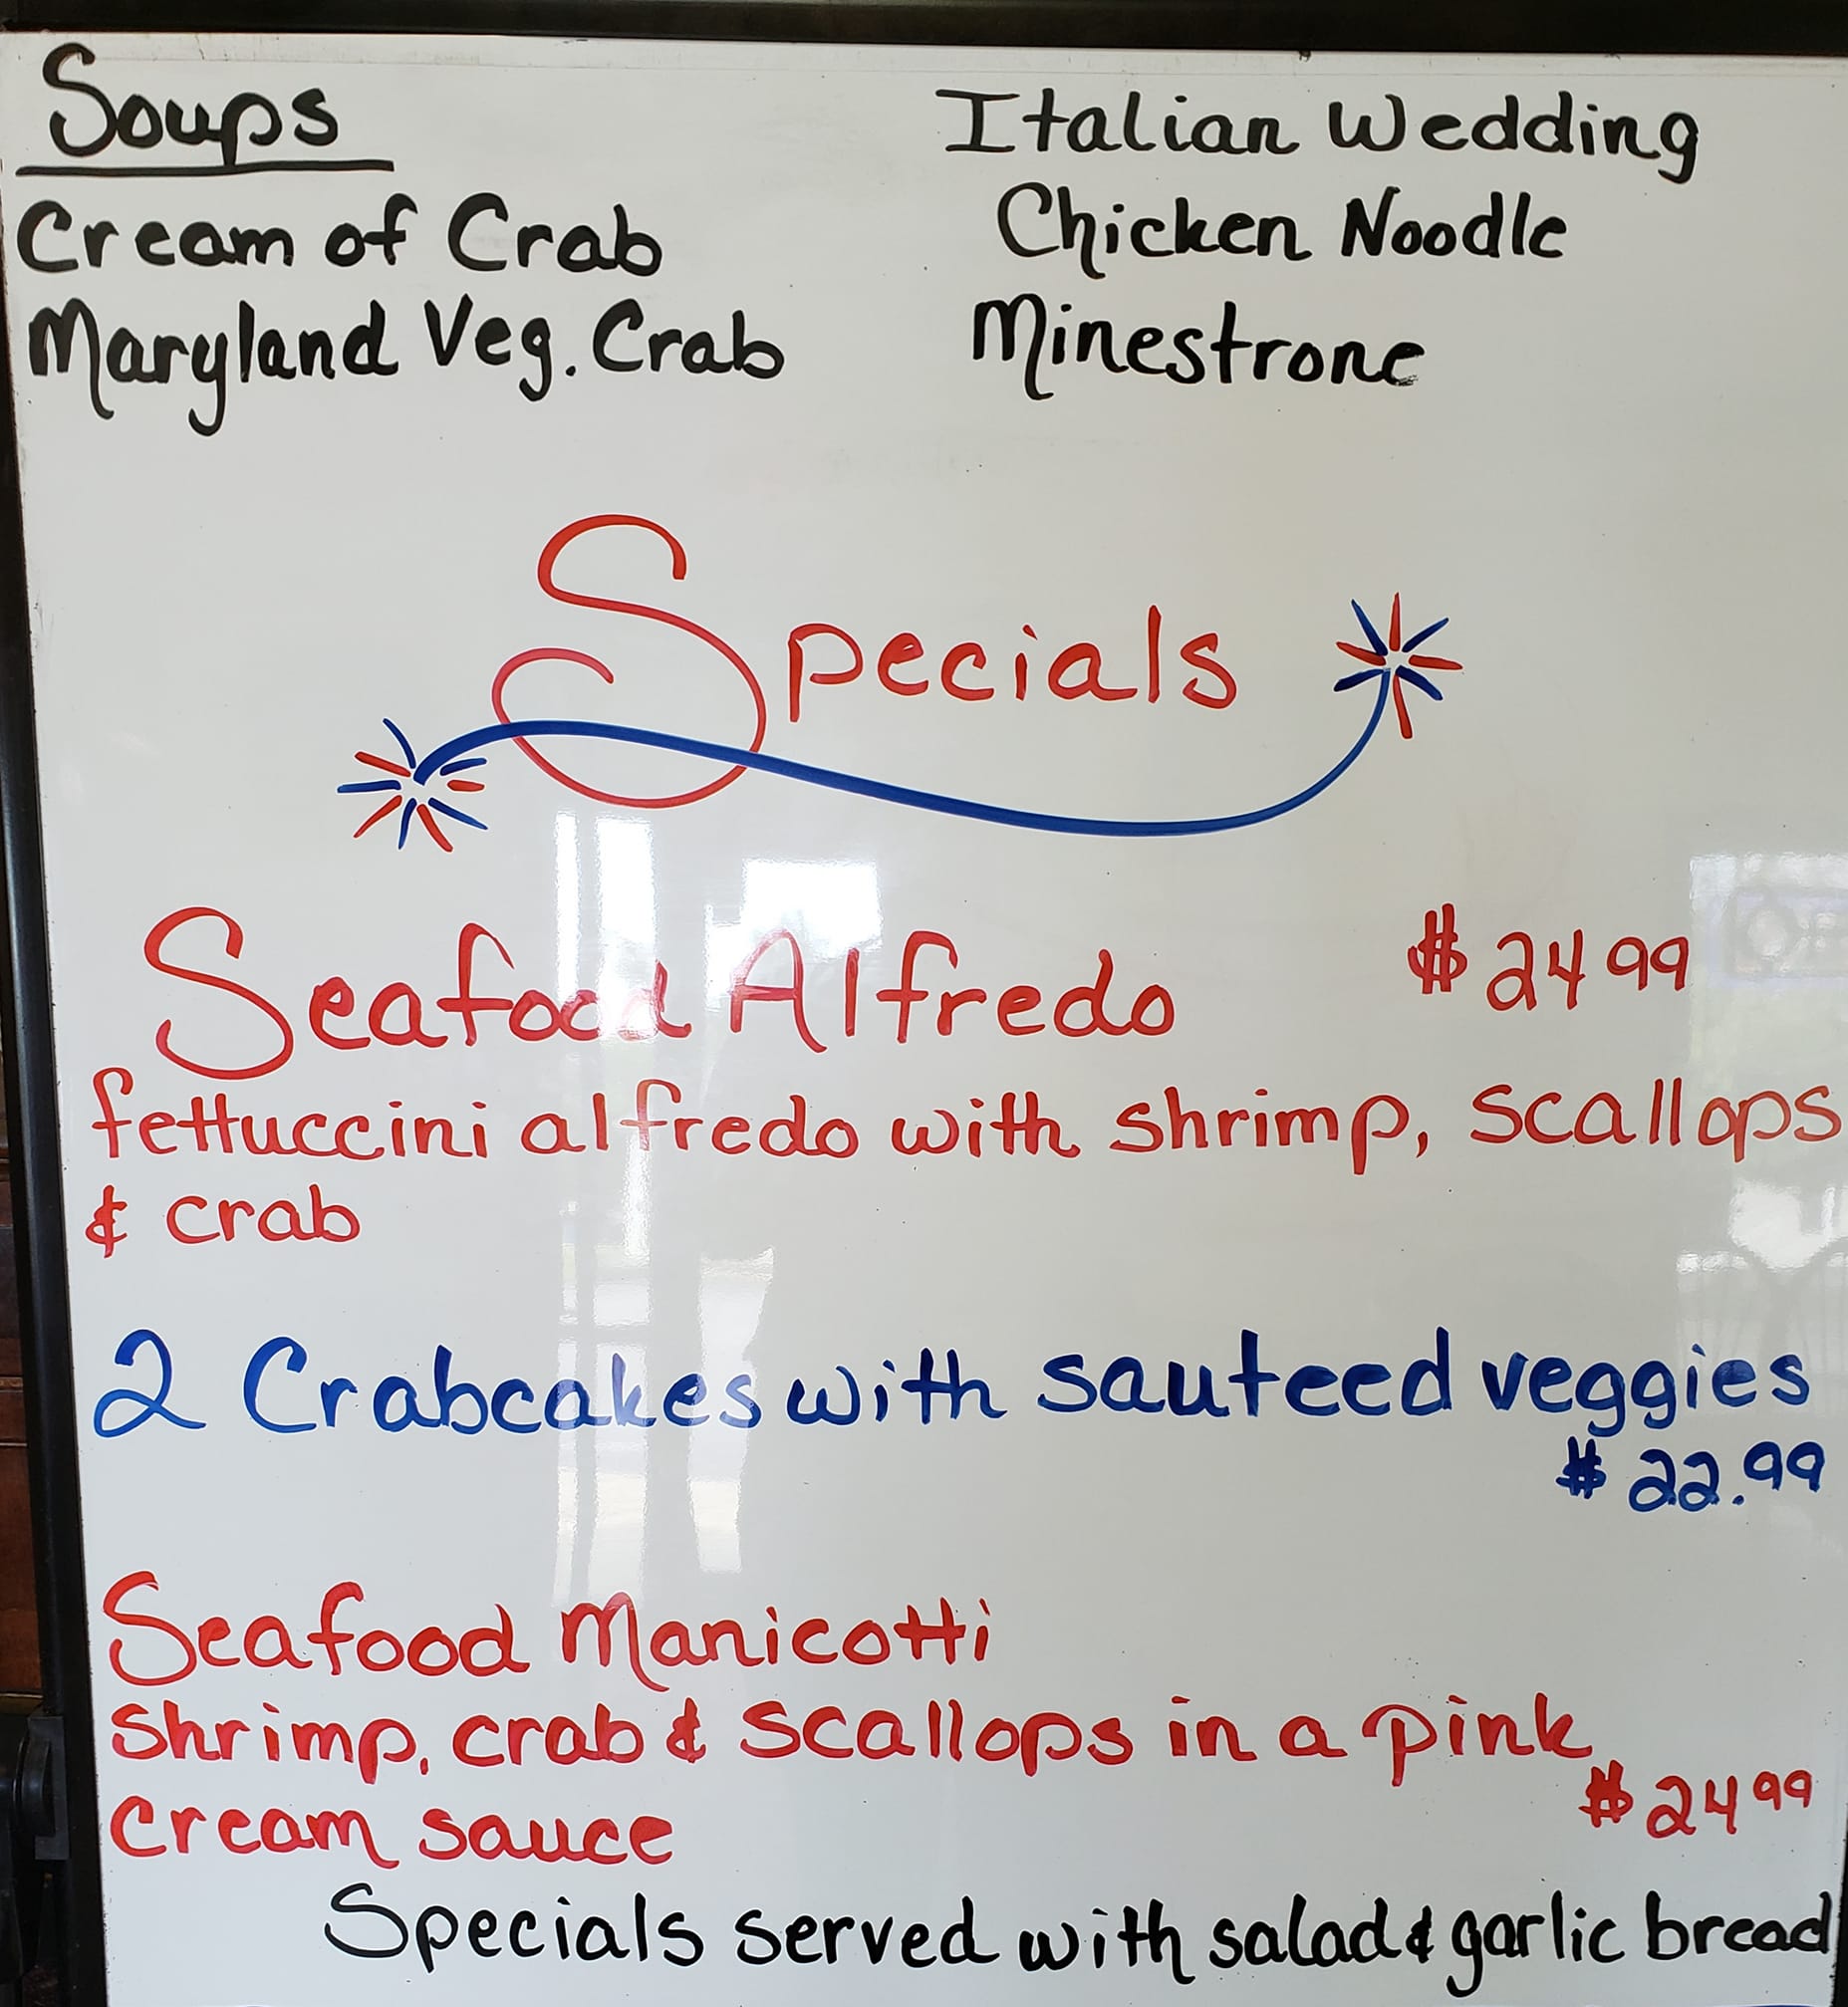 Soups
Cream of Crab
Maryland Veg. Crab
Italian Wedding
Chicken Noodle
Minestrone
Specials
Seafood Alfredo $24 99
fettuccini alfredo with shrimp, scallops
& crab
2 Crabcakes with sauteed veggies
$22.99
Seafood Manicotti
shrimp, crab & scallops in a pink
cream sauce $24 99
Specials served with salad & garlic bread